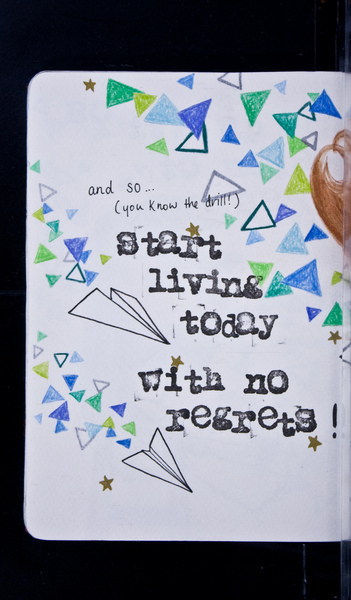 and so...
(you know the drill!)
start
living
today
with no
regrets!